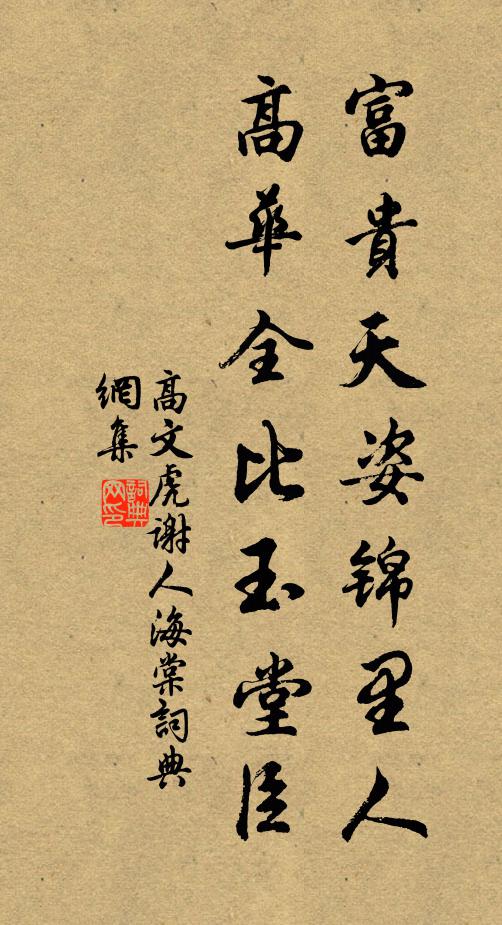 富貴天姿錦里人
高華全比玉堂臣
高文虎謝人海棠詞典
網集
詞典
网印